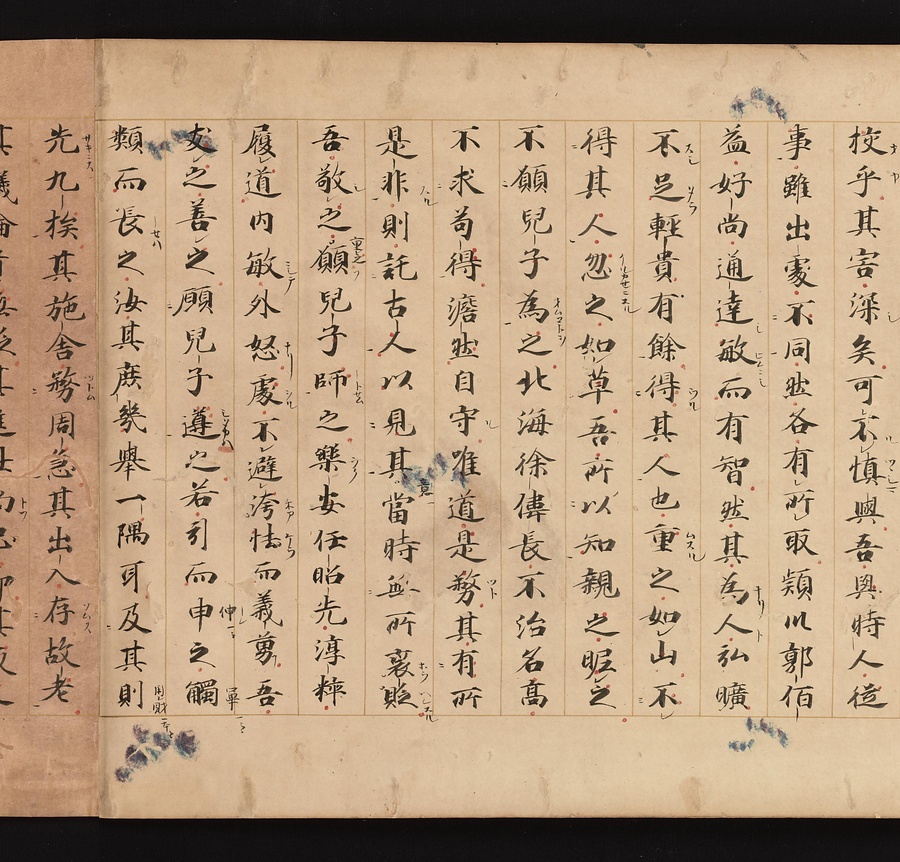 挍乎其害深矣可不慎與吾與時人從
事雖出處不同然各有所取潁川郭伯
益好尚通達敏而有智然其為人弘曠
不足輕貴有餘得其人也重之如山不
得其人忽之如草吾所以知親之昵之
不願兒子為之北海徐偉長不治名高
不求苟得澹然自守唯道是務其有所
是非則託古人以見其意當時無所褒貶
吾敬之重之願兒子師之樂安任昭先淳粹
履道内敏外恕處不避洿怯而義勇吾
友之善之願兒子遵之若引而申之觸
類而長之汝其庶幾舉一隅耳及其用財則
先九族其施舍務周急其出入存故老